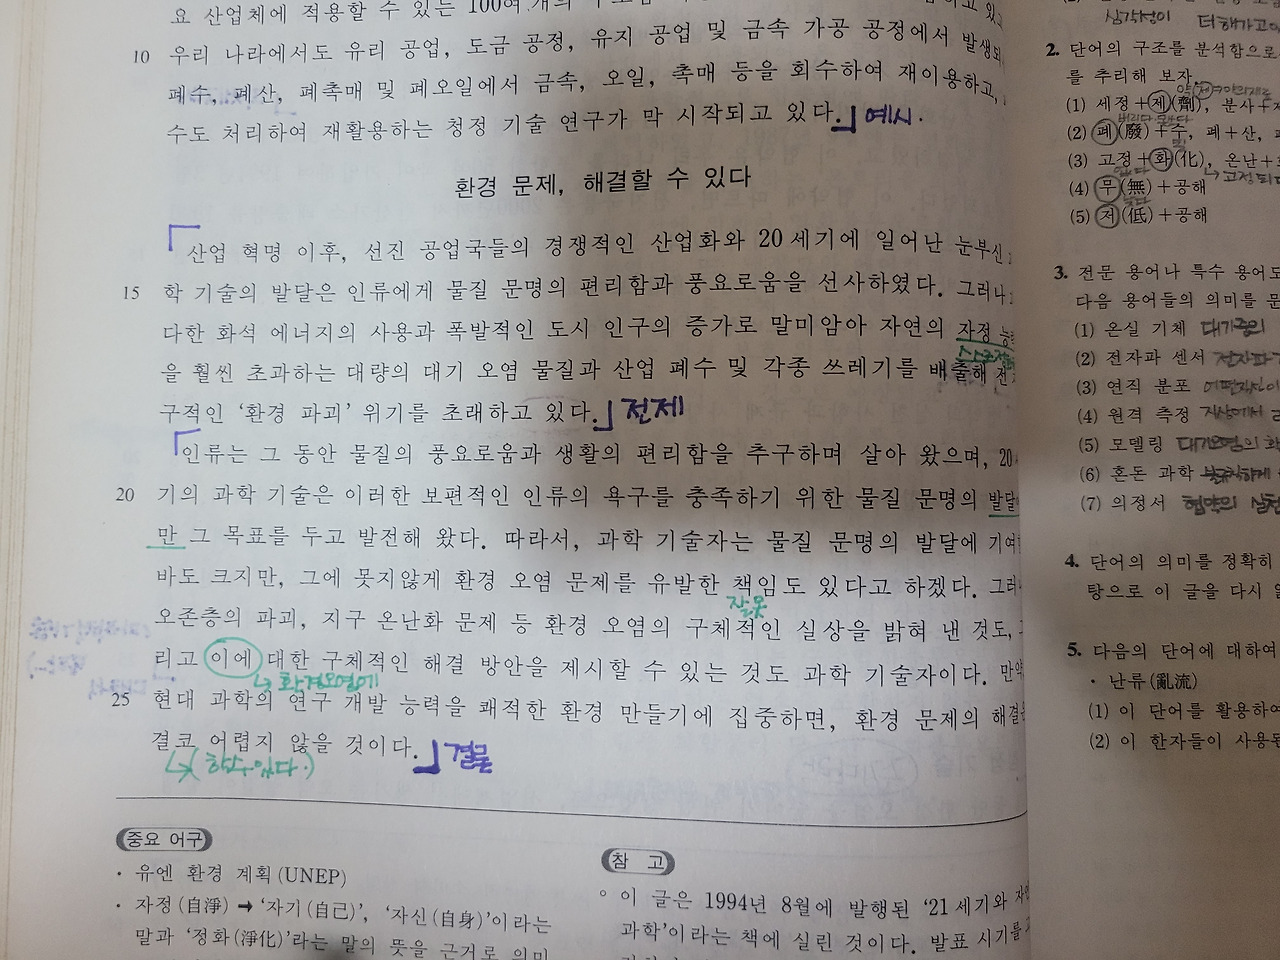 요 산업체에 적용할 수 있는 100여 개의
10 우리 나라에서도 유리 공업, 도금 공정, 유지 공업 및 금속 가공 공정에서 발생되
폐수, 폐산, 폐촉매 및 폐오일에서 금속, 오일, 촉매 등을 회수하여 재이용하고,
수도 처리하여 재활용하는 청정 기술 연구가 막 시작되고 있다.」 예시.
환경 문제, 해결할 수 있다
「산업 혁명 이후, 선진 공업국들의 경쟁적인 산업화와 20세기에 일어난 눈부신
15 학 기술의 발달은 인류에게 물질 문명의 편리함과 풍요로움을 선사하였다. 그러나
다한 화석 에너지의 사용과 폭발적인 도시 인구의 증가로 말미암아 자연의 자정 능력
을 훨씬 초과하는 대량의 대기 오염 물질과 산업 폐수 및 각종 쓰레기를 배출해 전
구적인 ‘환경 파괴’ 위기를 초래하고 있다.」 전제
「인류는 그 동안 물질의 풍요로움과 생활의 편리함을 추구하며 살아 왔으며, 20
20 기의 과학 기술은 이러한 보편적인 인류의 욕구를 충족하기 위한 물질 문명의 발달
만 그 목표를 두고 발전해 왔다. 따라서, 과학 기술자는 물질 문명의 발달에 기여
바도 크지만, 그에 못지않게 환경 오염 문제를 유발한 책임도 있다고 하겠다. 그러
잘못
오존층의 파괴, 지구 온난화 문제 등 환경 오염의 구체적인 실상을 밝혀 낸 것도, 그
리고 이에 대한 구체적인 해결 방안을 제시할 수 있는 것도 과학 기술자이다. 만약
↳ 환경오염에
25 현대 과학의 연구 개발 능력을 쾌적한 환경 만들기에 집중하면, 환경 문제의 해결은
결코 어렵지 않을 것이다.」 결론
↳ (할수있다.)
중요 어구
· 유엔 환경 계획(UNEP)
· 자정(自淨) ➞ ‘자기(自己)’, ‘자신(自身)’이라는
말과 ‘정화(淨化)’라는 말의 뜻을 근거로 의미
참 고
○ 이 글은 1994년 8월에 발행된 ‘21세기와 자연
과학’이라는 책에 실린 것이다. 발표 시기를
심각성이 더해가고
2. 단어의 구조를 분석함으로
를 추리해 보자.
(1) 세정+제(劑), 분사+
(2) 폐(廢)+수, 폐+산,
(3) 고정+화(化), 온난+
↳ 고정되다
(4) 무(無)+공해
(5) 저(低)+공해
3. 전문 용어나 특수 용어
다음 용어들의 의미를 문
(1) 온실 기체 대기중의
(2) 전자파 센서 전자파
(3) 연직 분포
(4) 원격 측정 지상에서
(5) 모델링 대기오염의
(6) 혼돈 과학
(7) 의정서 협약의
4. 단어의 의미를 정확히
탕으로 이 글을 다시
5. 다음의 단어에 대하여
· 난류(亂流)
(1) 이 단어를 활용하여
(2) 이 한자들이 사용된